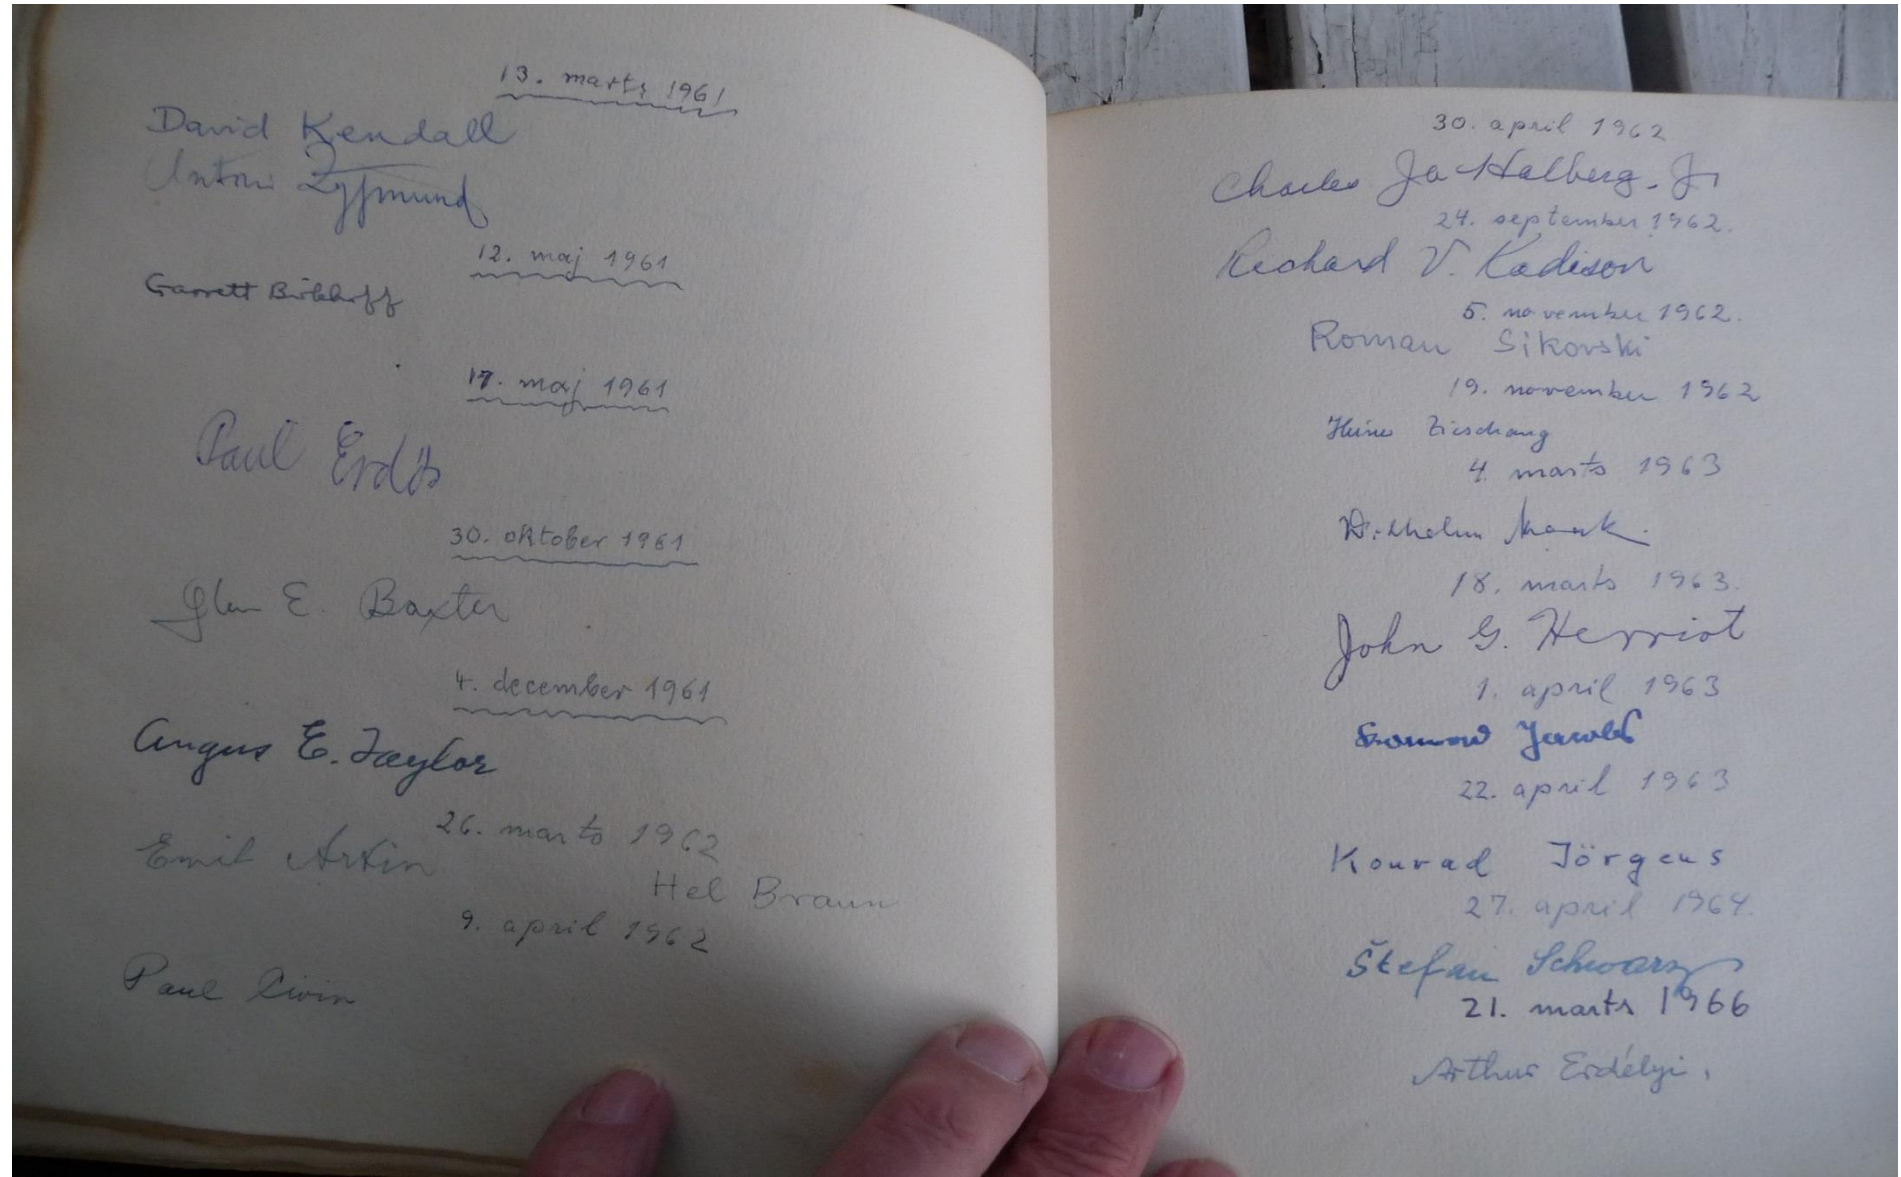 13. marts 1961
David Kendall
Antoni Zygmund
12. maj 1961
Garrett Birkhoff
17. maj 1961
Paul Erdős
30. oktober 1961
Glen E. Baxter
4. december 1961
Angus E. Taylor
26. marts 1962
Emil Artin
Hel Braun
9. april 1962
Paul Civin
30. april 1962
Charles J. A. Halberg, Jr
24. september 1962.
Richard V. Kadison
5. november 1962.
Roman Sikorski
19. november 1962
Heiner Zieschang
4. marts 1963
Wilhelm
18. marts 1963.
John G. Herriot
1. april 1963
Konrad Jacobs
22. april 1963
Konrad Jörgens
27. april 1964.
Štefan Schwarz
21. marts 1966
Arthur Erdélyi.